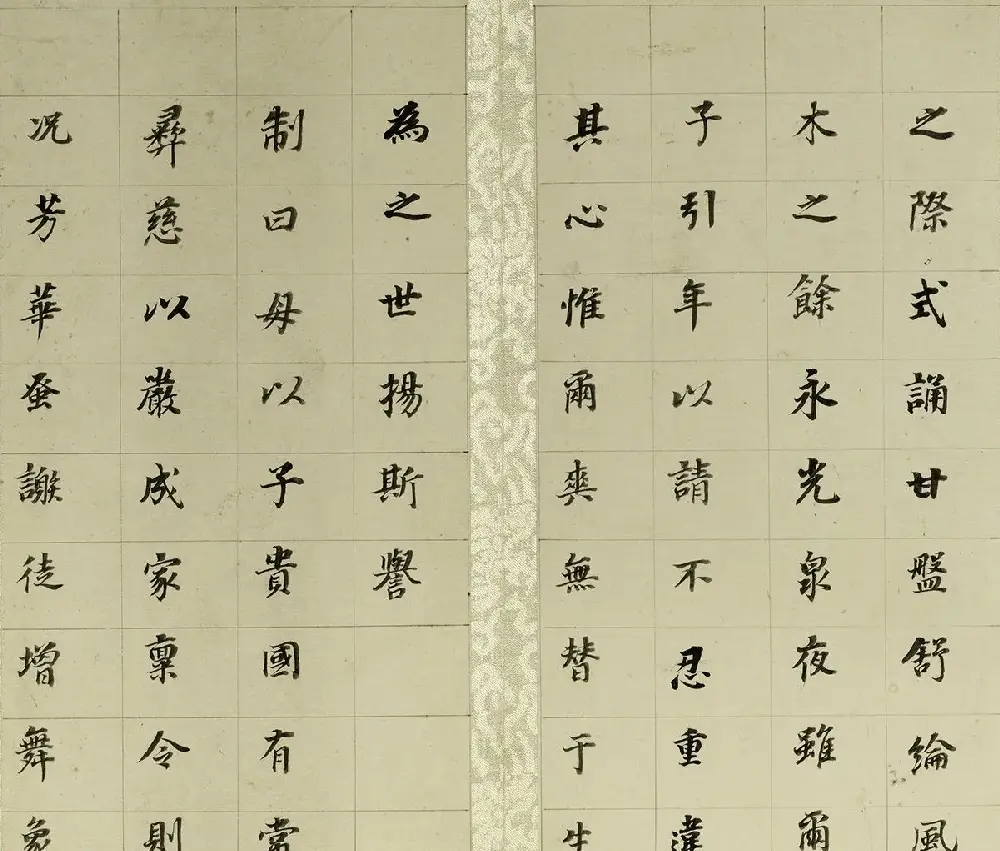 之際式誦甘盤舒綸風
木之餘永光泉夜雖爾
子引年以請不忍重違
其心惟爾爽無替于生
為之世揚斯譽
制曰母以子貴國有常
彝慈以嚴成家稟令則
况芳華蚤謝徒增舞象